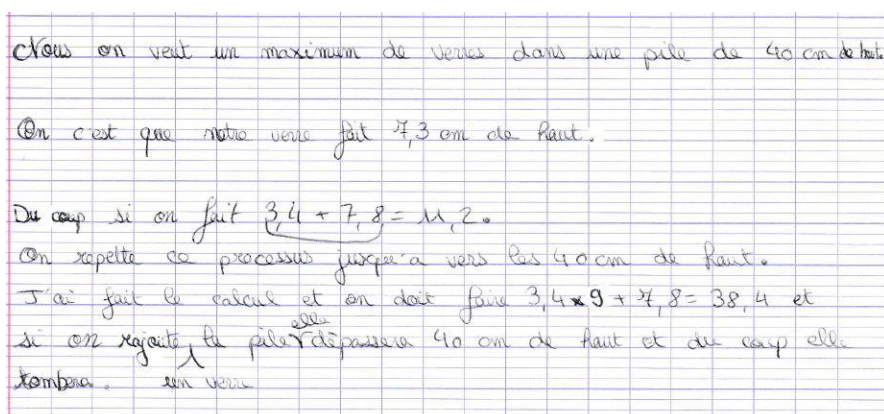 Nous on veut un maximum de verres dans une pile de 40 cm de haut.
On c'est que notre verre fait 7,3 cm de haut.
Du coup si on fait 3,4 + 7,8 = 11,2.
On repette ce processus jusqu'a vers les 40 cm de haut.
J'ai fait le calcul et on doit faire 3,4 × 9 + 7,8 = 38,4 et
si on rajoute un verre la pile elle dépassera 40 cm de haut et du coup elle
tombera.